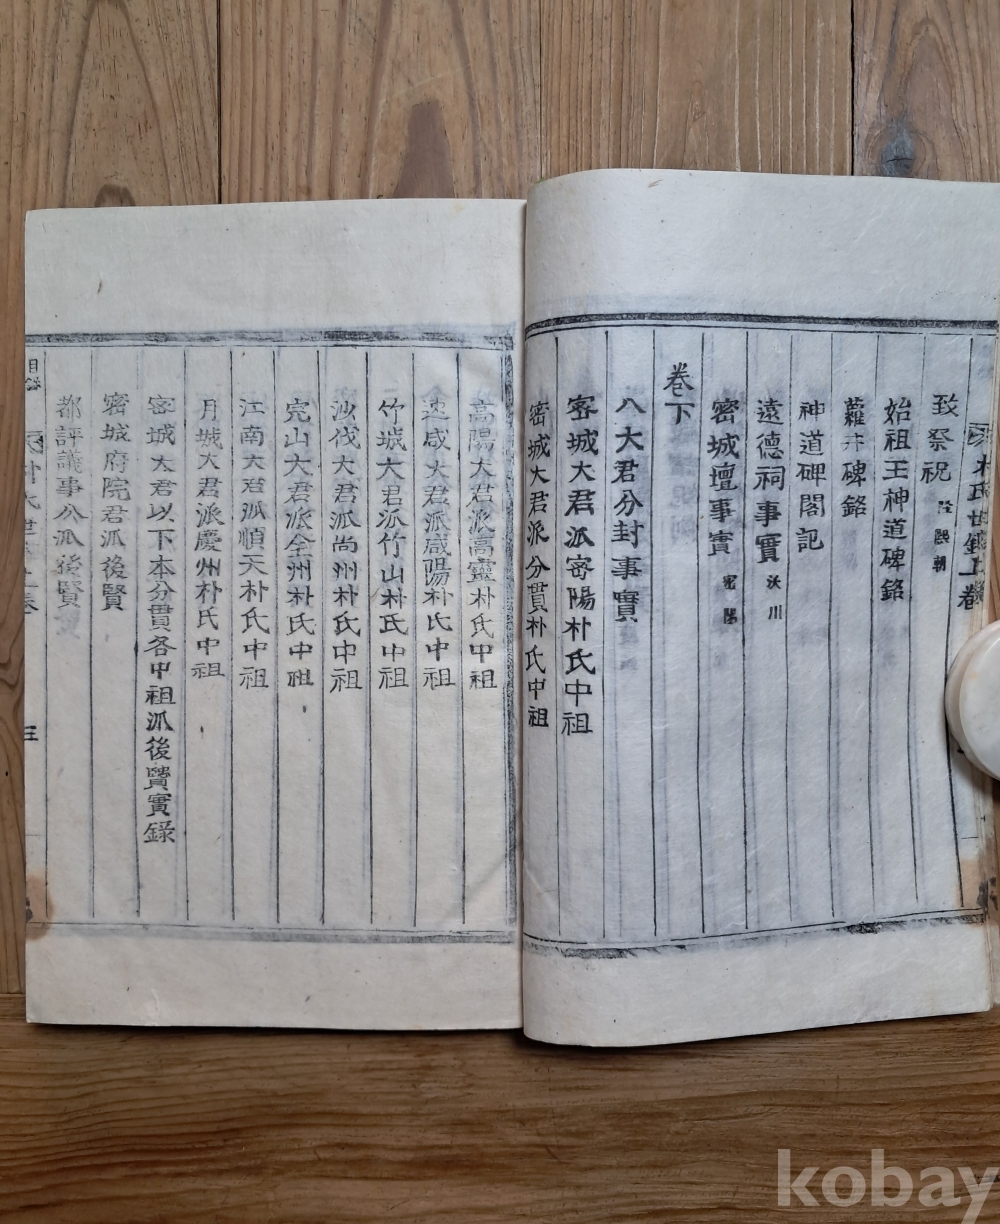 朴氏世鑑上卷
致祭祝 隆熙朝
始祖王神道碑銘
蘿井碑銘
神道碑閣記
遠德祠事實 沃川
密城壇事實 密陽
卷下
八大君分封事實
密城大君派密陽朴氏中祖
密城大君派分貫朴氏中祖
高陽大君派高靈朴氏中祖
速咸大君派咸陽朴氏中祖
竹城大君派竹山朴氏中祖
沙伐大君派尚州朴氏中祖
完山大君派全州朴氏中祖
江南大君派順天朴氏中祖
月城大君派慶州朴氏中祖
密城大君以下本分貫各中祖派後賢實錄
密城府院君派後賢
都評議事公派後賢
目錄
三
kobay